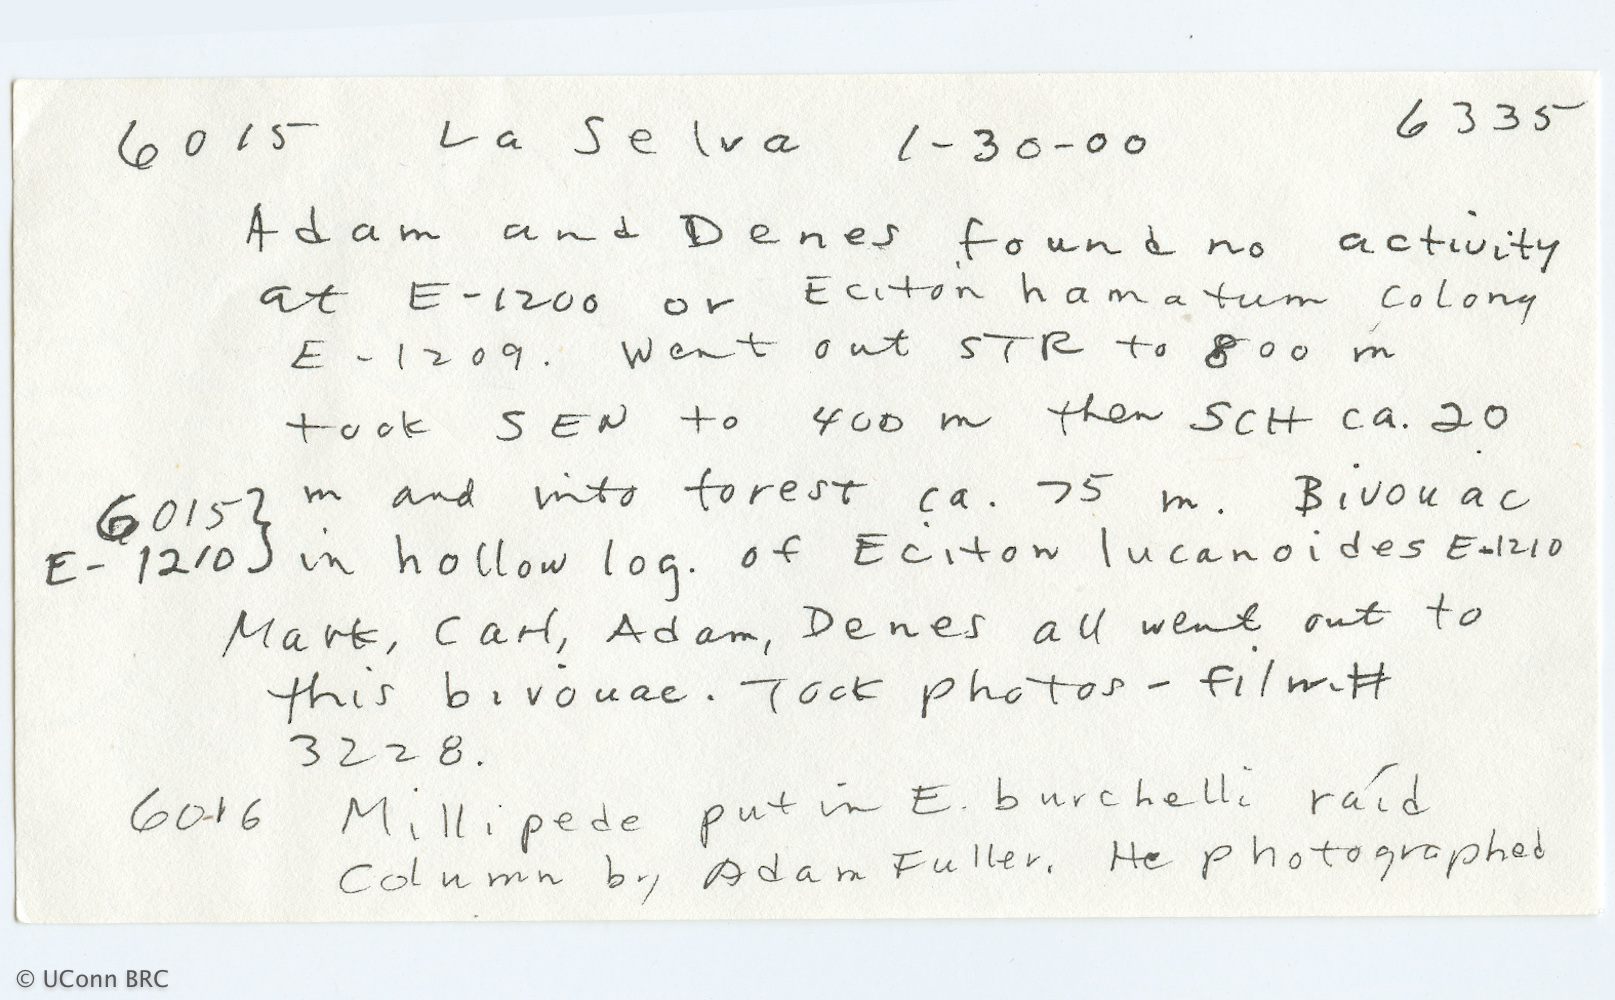 6015 La Selva 1-30-00 6335
Adam and Denes found no activity
at E-1200 or Eciton hamatum colony
E-1209. Went out STR to 800 m
took SEN to 400 m then SCH ca. 20
m and into forest ca. 75 m. Bivouac
6015}
E-1210} in hollow log. of Eciton lucanoides E-1210
Mark, Carl, Adam, Denes all went out to
this bivouac. Took photos - film #
3228.
6016 Millipede put in E. burchelli raid
column by Adam Fuller. He photographed
© UConn BRC